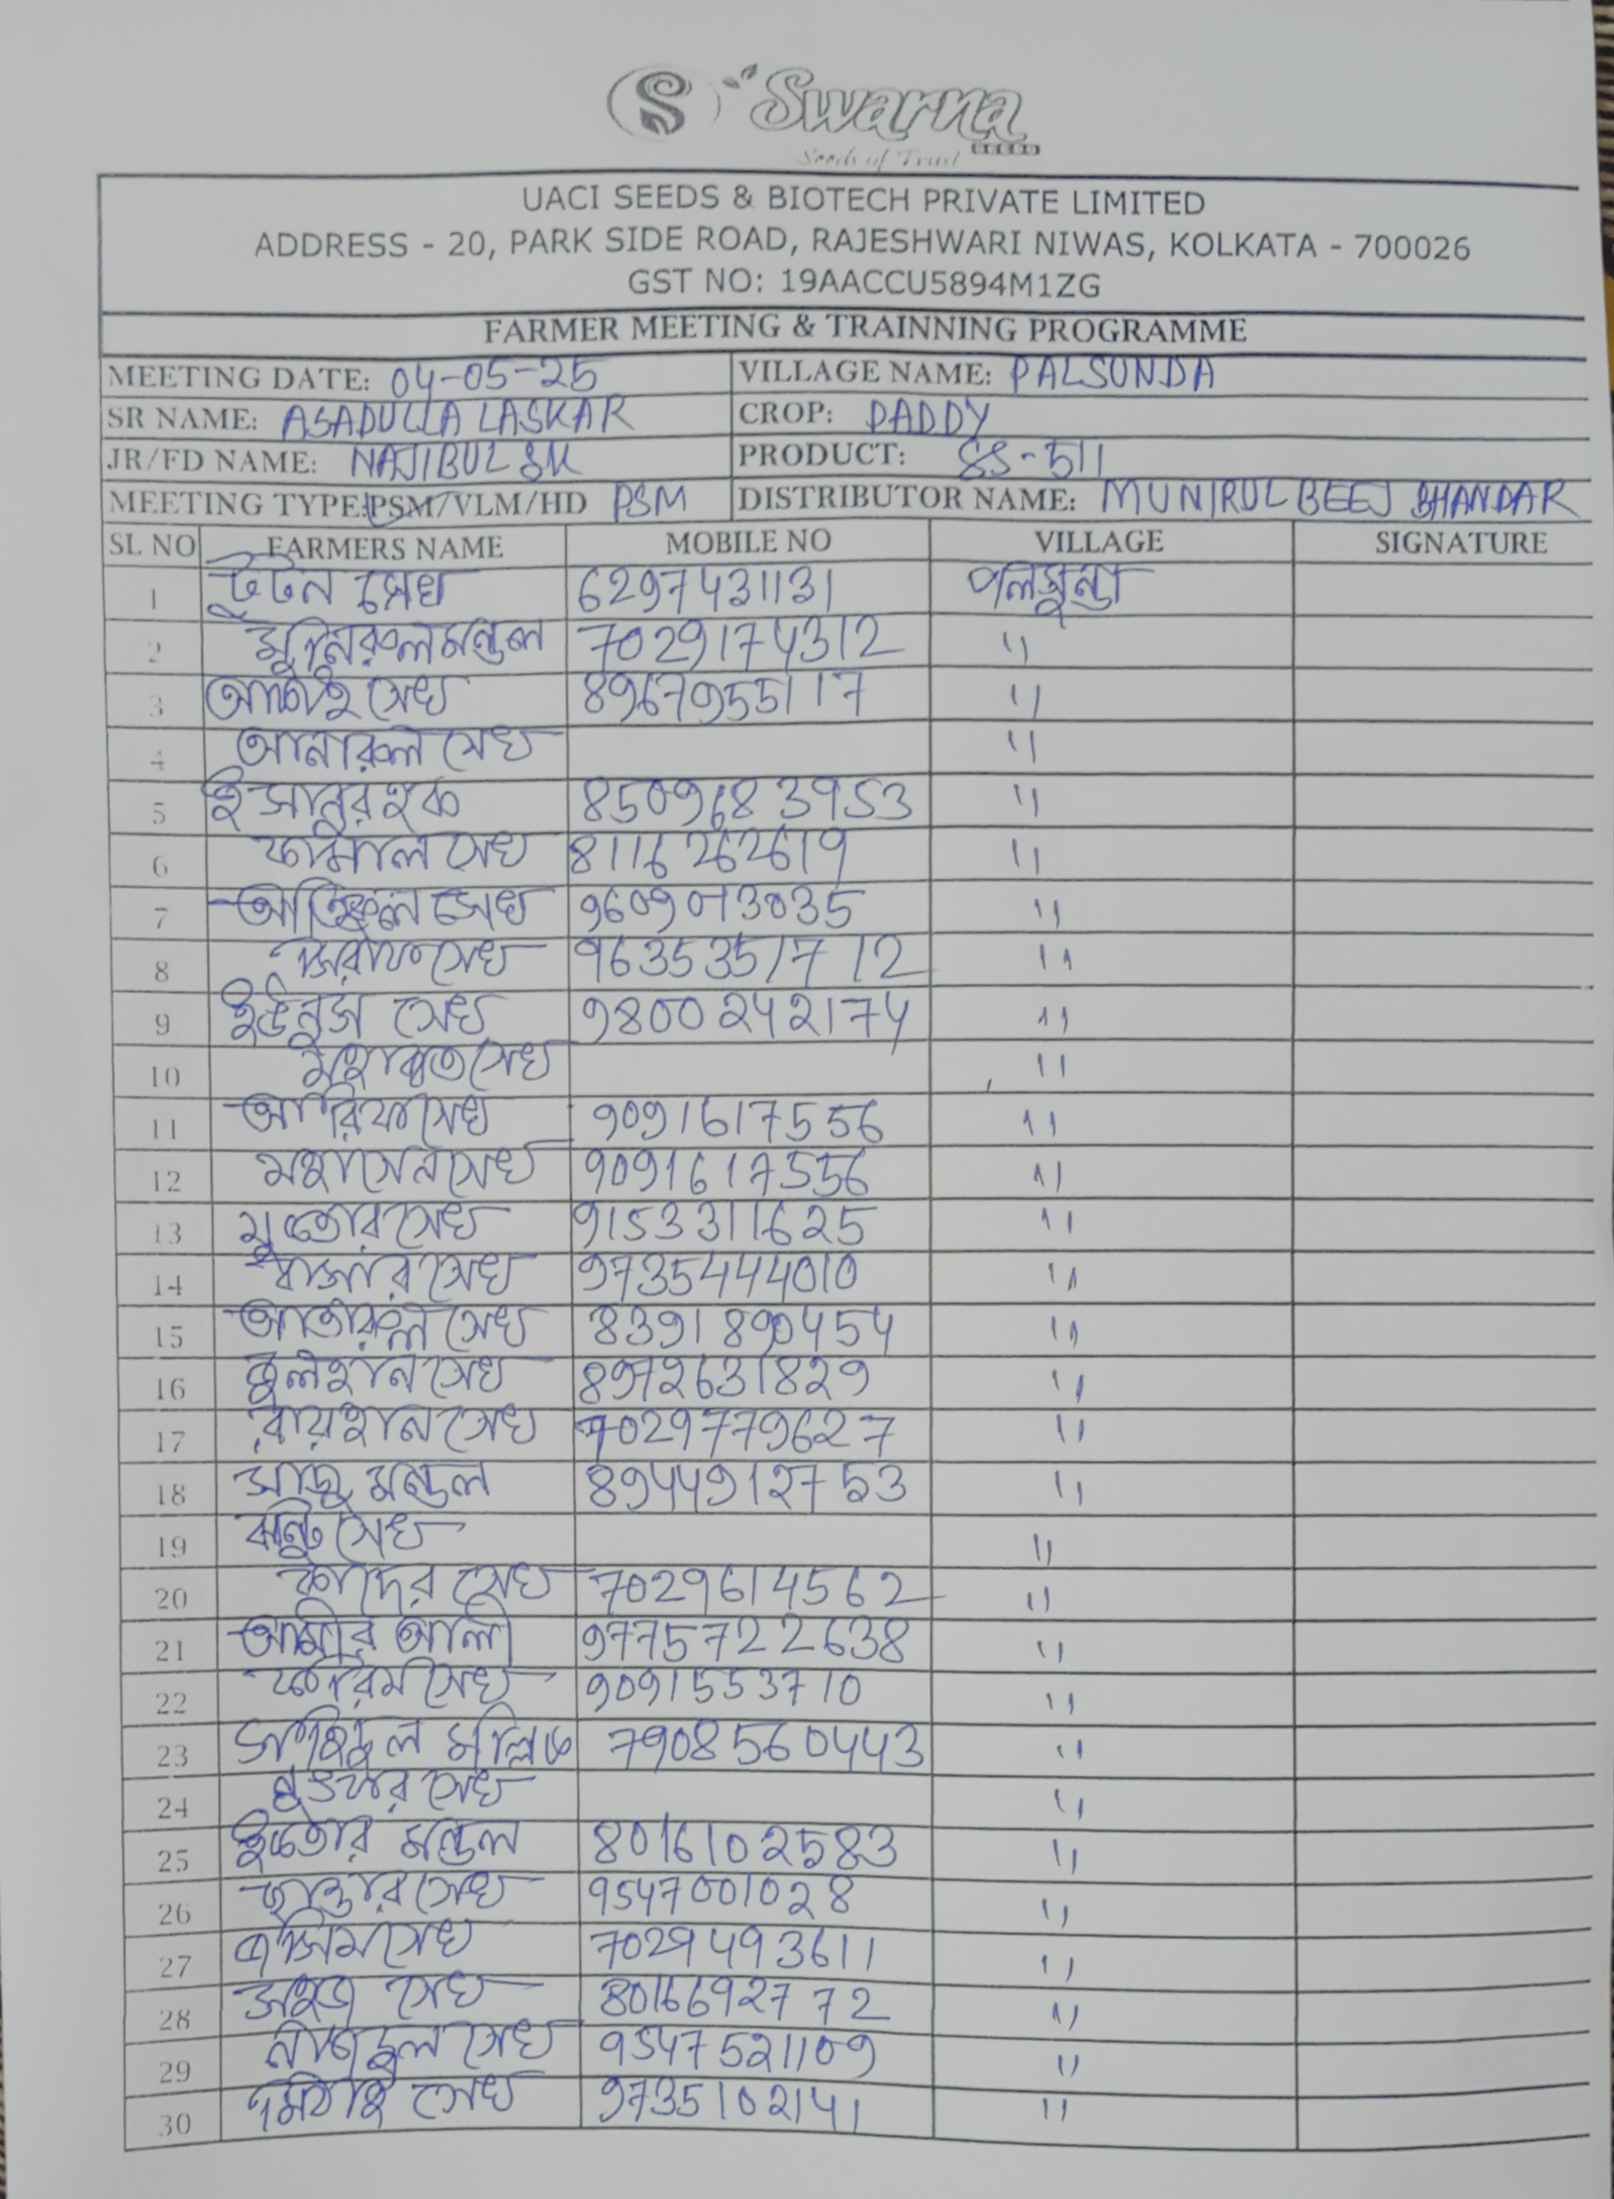 S Swarna
Seeds of Trust SEEDS
UACI SEEDS & BIOTECH PRIVATE LIMITED
ADDRESS - 20, PARK SIDE ROAD, RAJESHWARI NIWAS, KOLKATA - 700026
GST NO: 19AACCU5894M1ZG
FARMER MEETING & TRAINNING PROGRAMME
MEETING DATE: 04-05-25 VILLAGE NAME: PALSUNDA
SR NAME: ASADULLA LASKAR CROP: PADDY
JR/FD NAME: NAJIBUL SK PRODUCT: SS-511
MEETING TYPE:PSM/VLM/HD PSM DISTRIBUTOR NAME: MUNIRUL BEEJ BHANDAR
SL NO FARMERS NAME MOBILE NO VILLAGE SIGNATURE
1 টুটন সেখ 6297431131 পলসুন্ডা
2 মুনিরুল মন্ডল 7029174312 "
3 সেখ 8967955117 "
4 আনারুল সেখ "
5 হক 8509683953 "
6 কামাল সেখ 8116262619 "
7 সেখ 9609073035 "
8 সেখ 9635351712 "
9 ইউনুস সেখ 9800242174 "
10 সেখ "
11 আরিফ সেখ 9091617556 "
12 মহাসেন সেখ 9091617556 "
13 সেখ 9153311625 "
14 সেখ 9735444010 "
15 আতারুল সেখ 8391890454 "
16 সেখ 8972631829 "
17 রায়হান সেখ 7029779627 "
18 মন্ডল 8944912753 "
19 ঝন্টু সেখ "
20 কাদের সেখ 7029614562 "
21 আমীর আলী 9775722638 "
22 করিম সেখ 9091553710 "
23 মল্লিক 7908560443 "
24 সেখ "
25 মন্ডল 8016102583 "
26 সেখ 9547001028 "
27 সেখ 7029493611 "
28 সেখ 8016692772 "
29 সেখ 9547521109 "
30 সেখ 9735102141 "